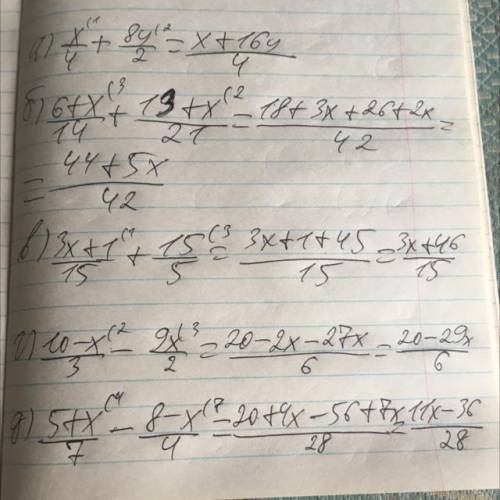 а) x⁽¹/4 + 8y⁽²/2 = x+16y/4
б) 6+x⁽³/14 + 13+x⁽²/21 = 18+3x+26+2x/42 =
= 44+5x/42
в) 3x+1⁽¹/15 + 15⁽³/5 = 3x+1+45/15 = 3x+46/15
г) 10-x⁽²/3 - 9x⁽³/2 = 20-2x-27x/6 = 20-29x/6
д) 5+x⁽⁴/7 - 8-x⁽⁷/4 = 20+4x-56+7x/28 = 11x-36/28